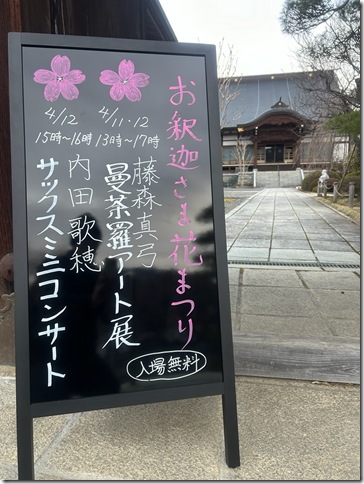 お釈迦さま花まつり
4/11・12
13時〜17時
藤森真弓
曼荼羅アート展
入場無料
4/12
15時〜16時
内田歌穂
サックスミニコンサート